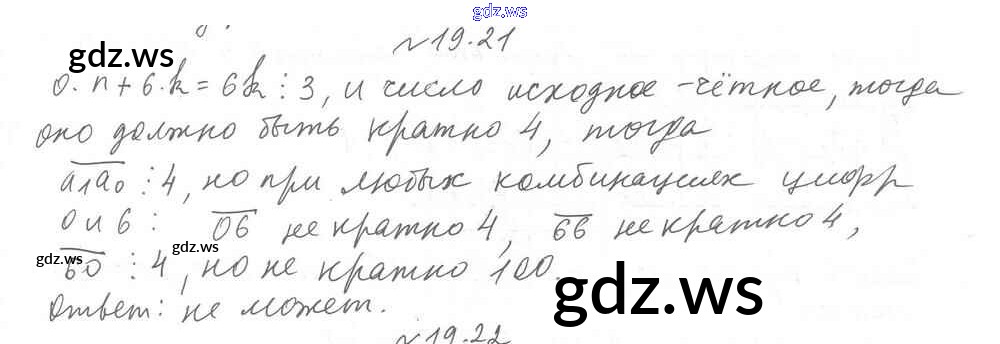 gdz.ws
№19.21
gdz.ws
0·n+6·k=6k⋮3, и число исходное - чётное, тогда
оно должно быть кратно 4, тогда
a₁a₀ ⋮4, но при любых комбинациях цифр
0 и 6: 06 не кратно 4, 66 не кратно 4,
gdz.ws
gdz.ws
60 ⋮4, но не кратно 100.
gdz.ws
Ответ: не может.
№19.22